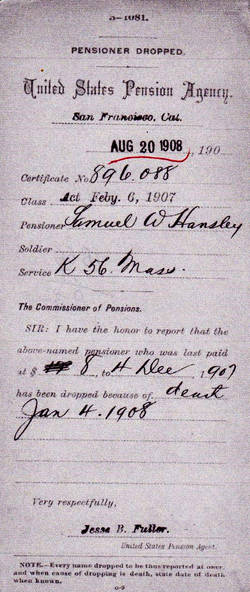 3-1081.
PENSIONER DROPPED.
United States Pension Agency,
San Francisco, Cal.
AUG 20 1908, 190
Certificate No. 896.088
Class Act Feby. 6, 1907
Pensioner Samuel W Hansley
Soldier
Service K 56. Mass.
The Commissioner of Pensions.
SIR: I have the honor to report that the
above-named pensioner who was last paid
at $ 8, to 4 Dec, 1907
has been dropped because of death
Jan 4. 1908
Very respectfully,
Jesse B. Fuller,
United States Pension Agent.
NOTE.—Every name dropped to be thus reported at once,
and when cause of dropping is death, state date of death
when known.